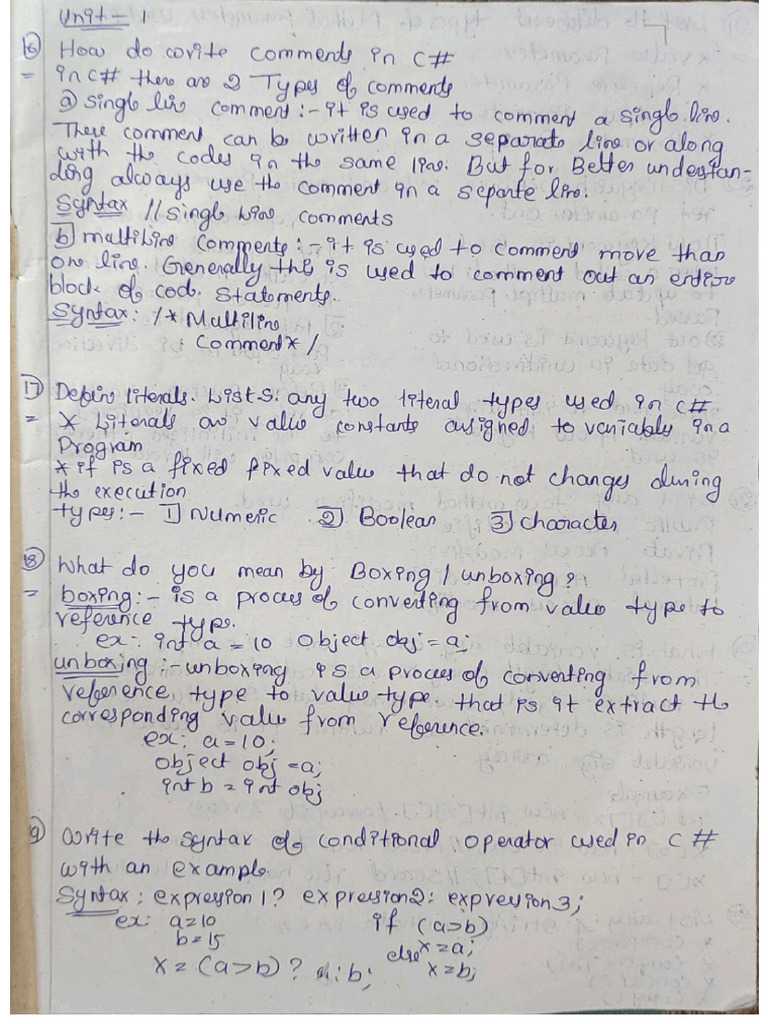 Unit - 1
16) How do write comments in C#
= in C# there are 2 Types of comments
a) single line comment :- it is used to comment a single line.
These comment can be written in a separate line or along
with the codes in the same line. But for Better understan-
ding always use the comment in a separte line.
Syntax //single line comments
b) multiline comments :- it is used to comment more than
one line. Generally this is used to comment out an entire
block of code statements.
Syntax : /* Multiline
Comment */
17) Define literals. List any two literal types used in C#
= * Literals are value constants assigned to variables in a
Program
* it is a fixed fixed value that do not changes during
the execution
types :- 1) Numeric 2) Boolean 3) character
18) What do you mean by Boxing / unboxing ?
= boxing :- is a proces of converting from value type to
reference type.
ex :- int a = 10 object obj = a;
unboxing :- unboxing is a proces of converting from
reference type to value type that is it extract the
corresponding value from reference.
ex: a = 10;
object obj = a;
int b = int obj
9) write the syntax of conditional operator used in C#
with an example.
Syntax : expression 1 ? expression 2 : expression 3 ;
ex: a = 10 if (a > b)
b = 15 x = a;
else
x = (a > b) ? a : b; x = b;